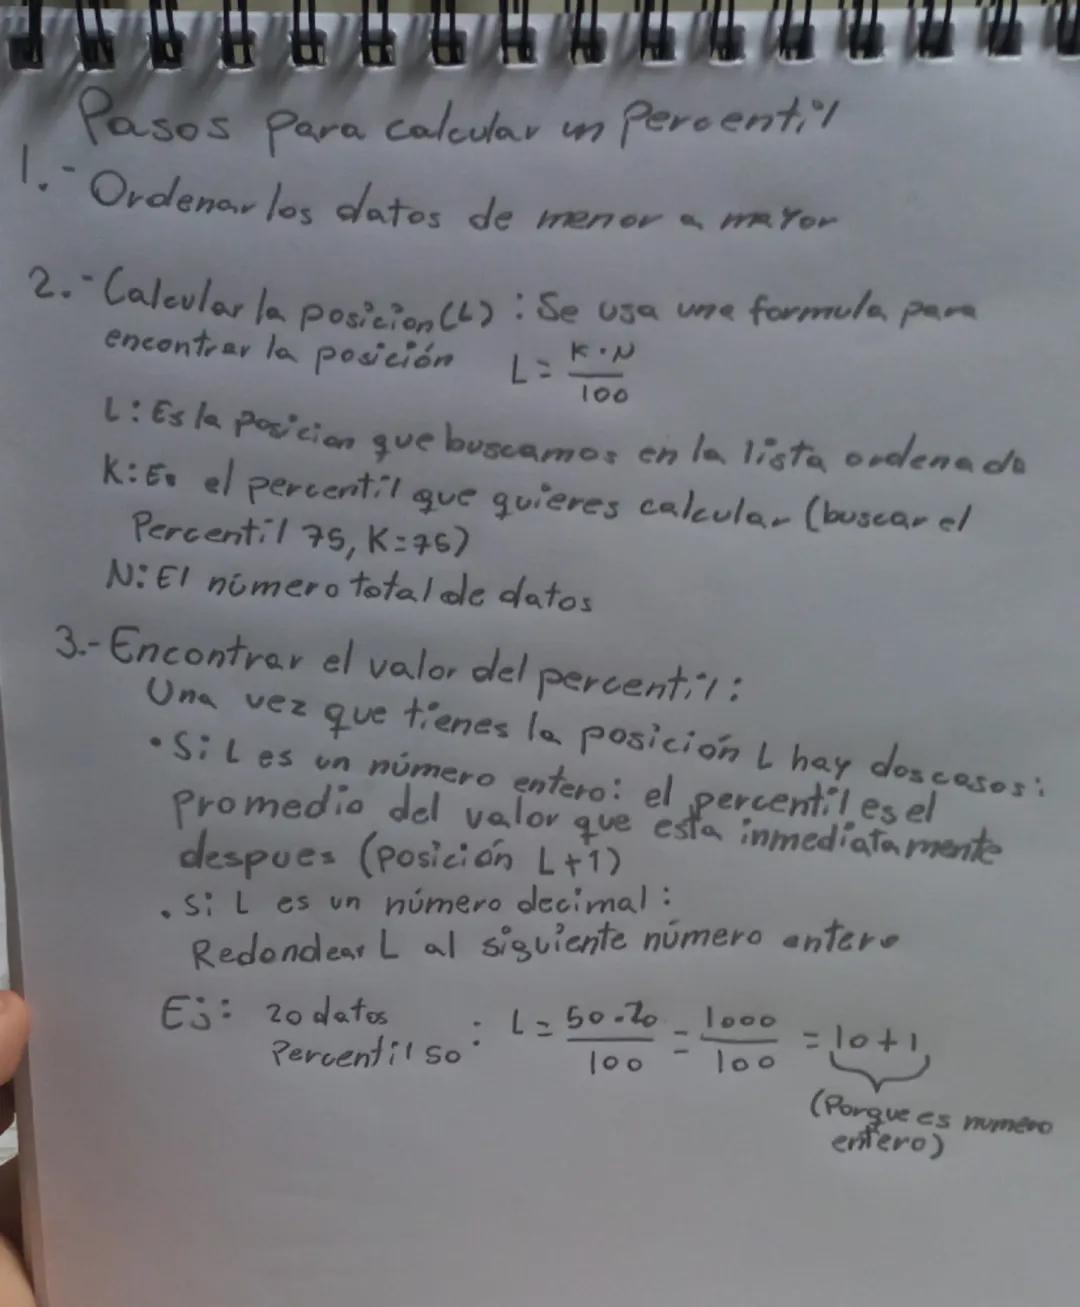 Pasos para calcular un percentil
1.- Ordenar los datos de menor a mayor
2.- Calcular la posicion (L) : Se usa una formula para
encontrar la posición L = K·N / 100
L: Es la posicion que buscamos en la lista ordenada
K: Es el percentil que quieres calcular (buscar el
Percentil 75, K=75)
N: El número total de datos
3.- Encontrar el valor del percentil:
Una vez que tienes la posición L hay dos casos:
• Si L es un número entero: el percentil es el
promedio del valor que esta inmediatamente
despues (posición L+1)
• Si L es un número decimal:
Redondear L al siguiente número entero
Ej: 20 datos
Percentil 50 : L = 50·20 / 100 = 1000 / 100 = 10+1
(Porque es numero
entero)